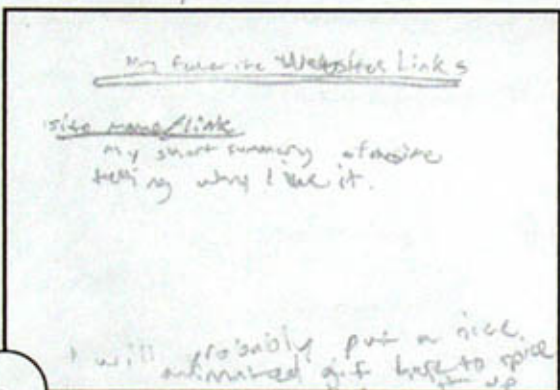 My favorite Websites Links
site name/link
my short summary of
telling why I like it.
I will probably put a nice
animated gif here to spice
it up